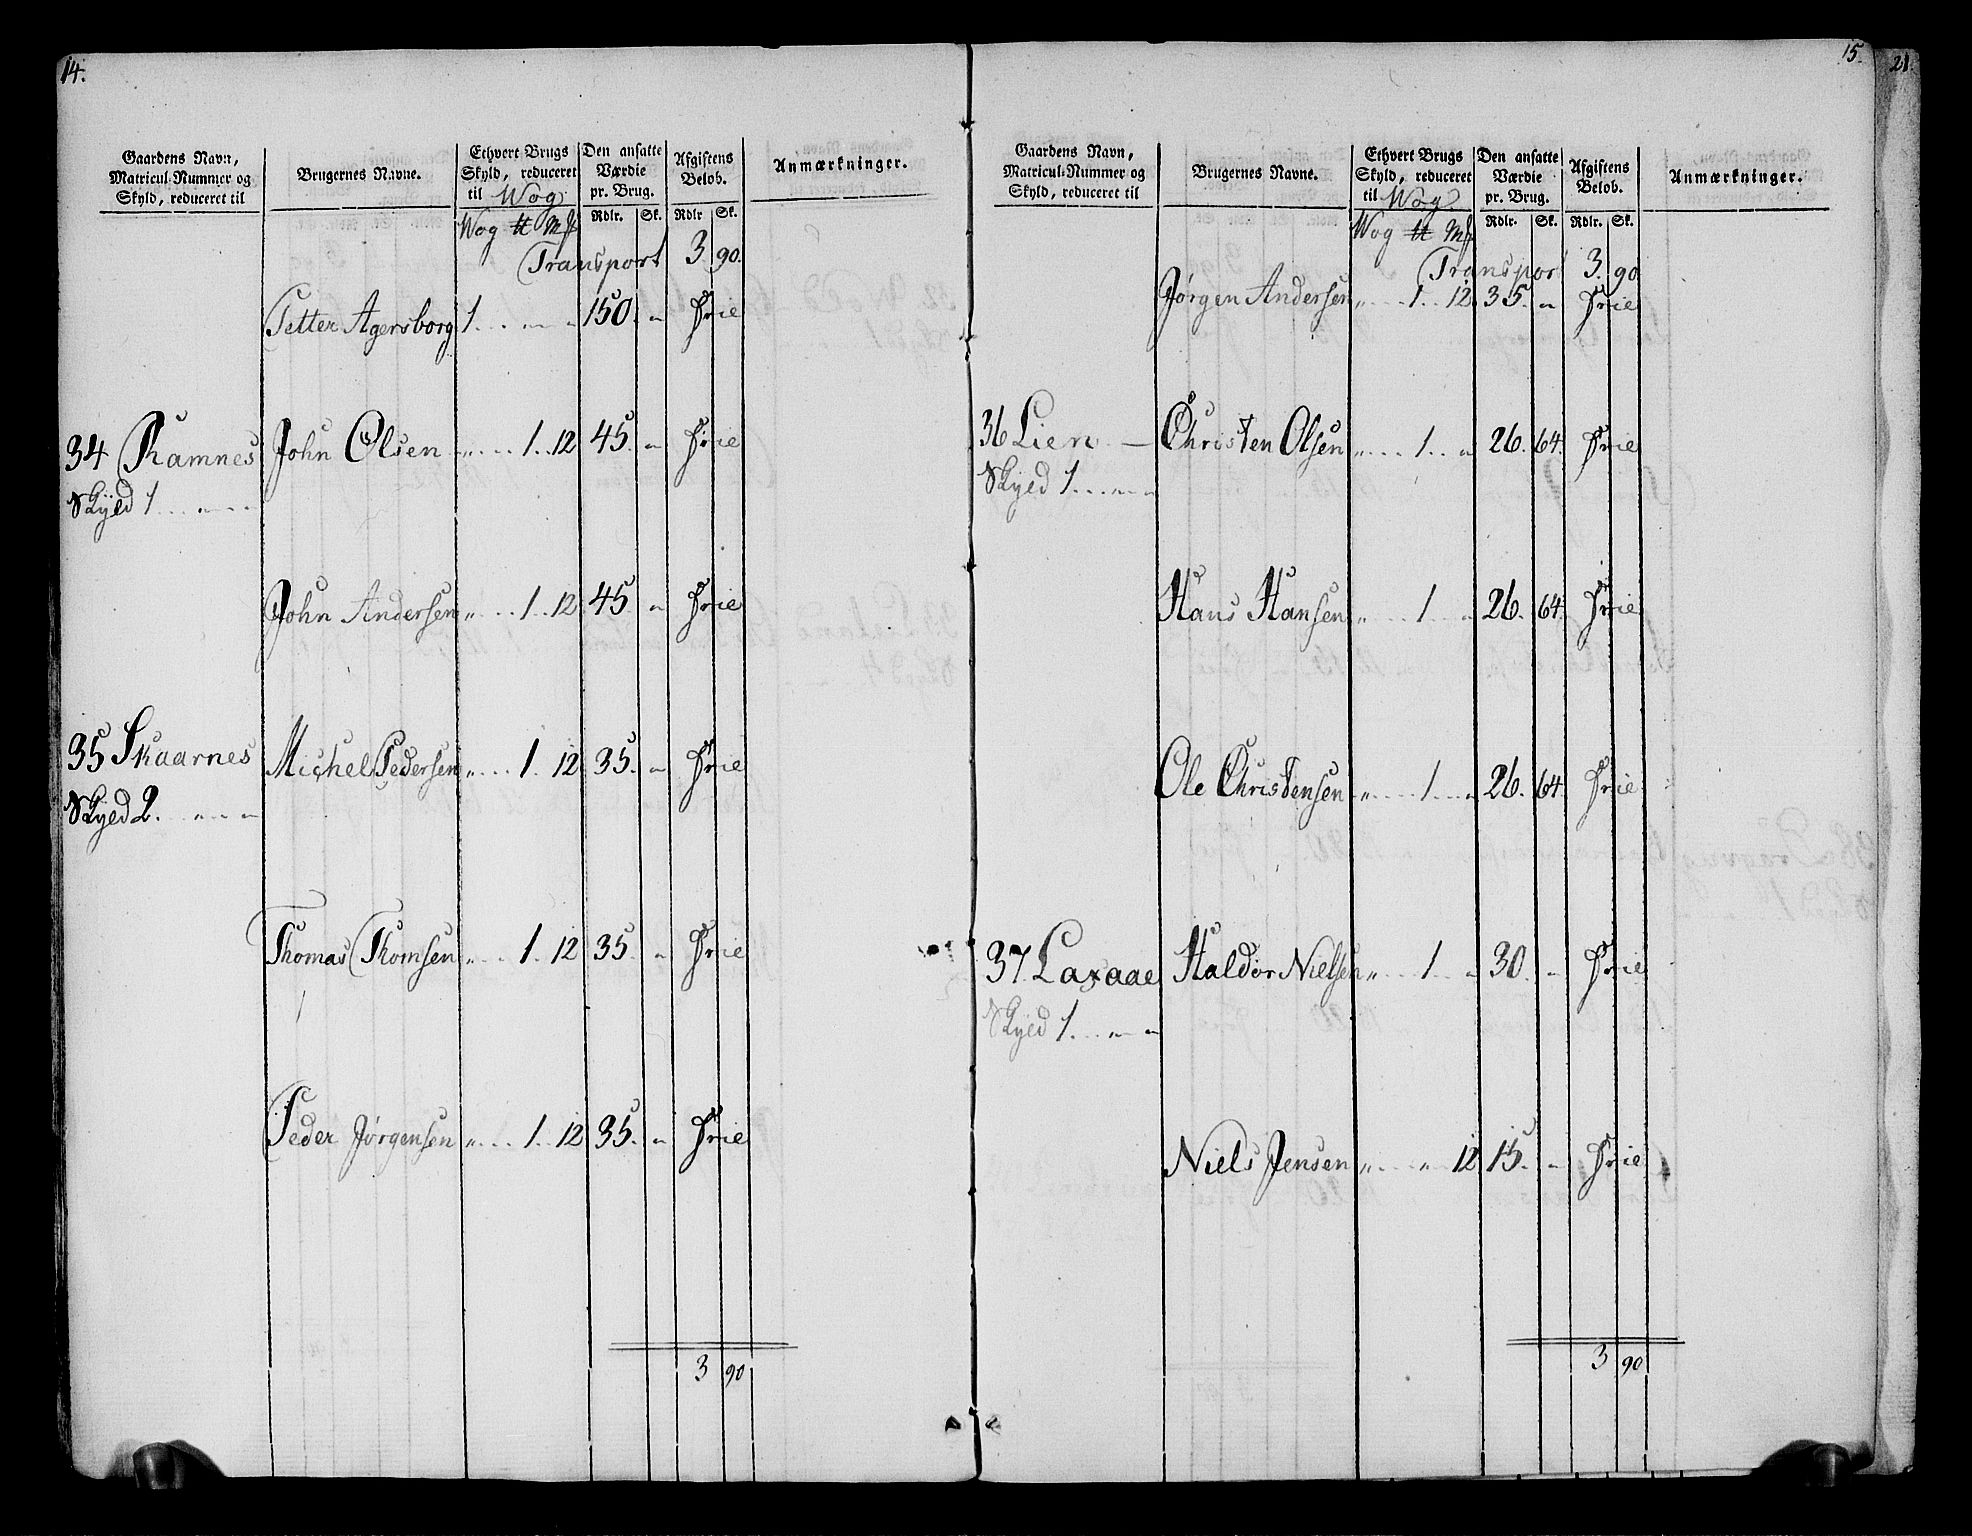 14.
Gaardens Navn, Matricul-Nummer og Skyld, reduceret til | Brugernes Navne. | Ethvert Brugs Skyld, reduceret til Wog | Den ansatte Værdie pr. Brug. | Afgiftens Belob. | Anmærkninger.
Wog ℔ Mk | Rdlr. Sk. | Rdlr Sk.
Transport 3. 90.
Petter Agersborg 1 . . „ „ 150. „ Frie
34 Ramnes John Olsen „ . . . 1 . . 12 45. „ Frie
Skyld 1 . . . „ . .
John Andersen „ . . . 1 . . 12 45. „ Frie
35 Skaarnes Michel Pedersen „ . . . 1 . . 12 35. „ Frie
Skyld 2. . . „ „ „
Thomas Thomsen „ . . . 1 . . 12 35. „ Frie
Peder Jørgensen „ . . . 1 . . 12 35. „ Frie
3 90
15.
Gaardens Navn, Matricul-Nummer og Skyld, reduceret til | Brugernes Navne. | Ethvert Brugs Skyld, reduceret til Wog | Den ansatte Værdie pr. Brug. | Afgiftens Belob. | Anmærkninger.
Wog ℔ Mk | Rdlr. Sk. | Rdlr. Sk.
Transport 3. 90
Jørgen Andersen „ . . . 1 . . 12 35. „ Frie
36 Lien — Christen Olsen „ . . . 1 . . „ 26. 64. Frie
Skyld 1 . . „ „
Hans Hansen „ . . . 1 . . „ 26. 64. Frie
Ole Christensen „ . . . 1 . . „ 26. 64. Frie
37. Laxaae Haldor Nielsen „ . . . 1 . . „ 30. „ Frie
Skyld 1. . . „ „
Niels Jensen „ . . . „ 12 15. „ Frie
3 90
21.